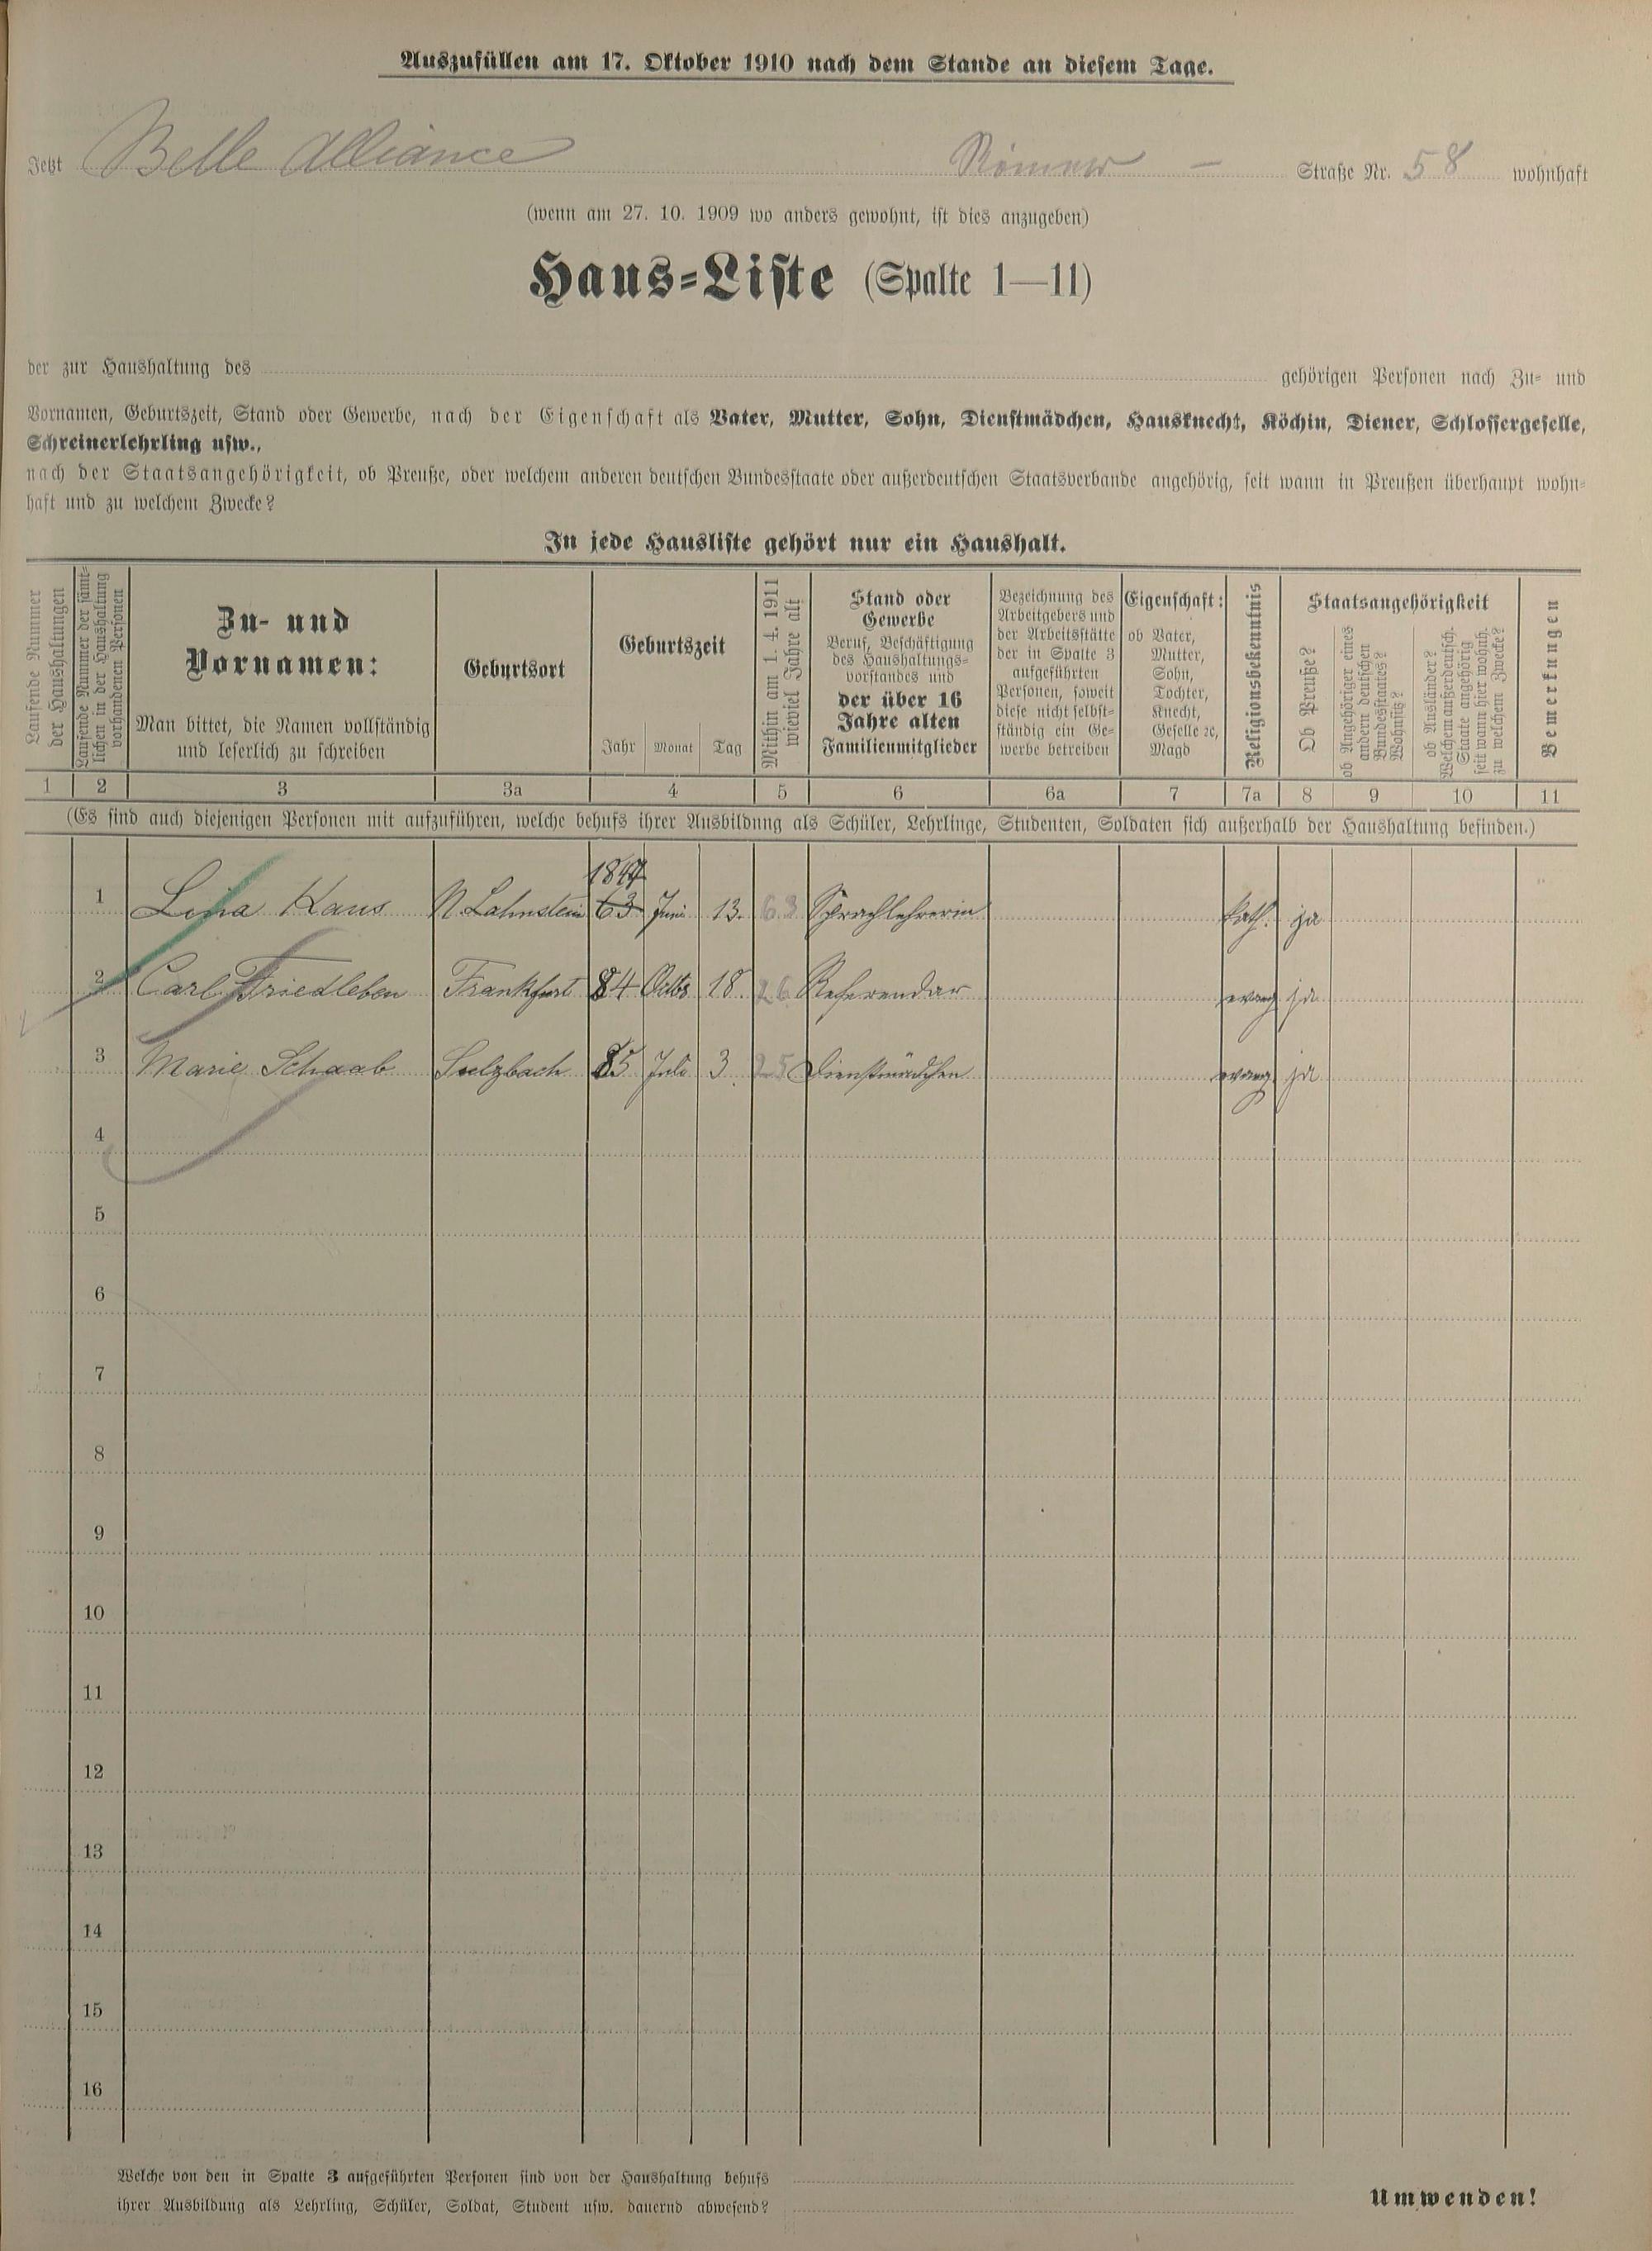 Auszufüllen am 17. Oktober 1910 nach dem Stande an diesem Tage.
Jetzt Belle Alliance Römer – Straße Nr. 58 wohnhaft
(wenn am 27. 10. 1909 wo anders gewohnt, ist dies anzugeben)
Haus-Liste (Spalte 1—11)
der zur Haushaltung des gehörigen Personen nach Zu- und
Vornamen, Geburtszeit, Stand oder Gewerbe, nach der Eigenschaft als Vater, Mutter, Sohn, Dienstmädchen, Hausknecht, Köchin, Diener, Schlossergeselle,
Schreinerlehrling usw.,
nach der Staatsangehörigkeit, ob Preuße, oder welchem anderen deutschen Bundesstaate oder außerdeutschen Staatsverbande angehörig, seit wann in Preußen überhaupt wohn-
haft und zu welchem Zwecke?
In jede Hausliste gehört nur ein Haushalt.
Laufende Nummer
der Haushaltungen
Laufende Nummer der sämt-
lichen in der Haushaltung
vorhandenen Personen
Zu- und
Vornamen:
Man bittet, die Namen vollständig
und leserlich zu schreiben
Geburtsort
Geburtszeit
Jahr Monat Tag
Mithin am 1. 4. 1911
wieviel Jahre alt
Stand oder
Gewerbe
Beruf, Beschäftigung
des Haushaltungs-
vorstandes und
der über 16
Jahre alten
Familienmitglieder
Bezeichnung des
Arbeitgebers und
der Arbeitsstätte
der in Spalte 3
aufgeführten
Personen, soweit
diese nicht selbst-
ständig ein Ge-
werbe betreiben
Eigenschaft:
ob Vater,
Mutter,
Sohn,
Tochter,
Knecht,
Geselle ꝛc,
Magd
Religionsbekenntnis
Staatsangehörigkeit
Ob Preuße?
ob Angehöriger eines
andern deutschen
Bundesstaates?
Wohnsitz?
ob Ausländer?
Welchem außerdeutsch.
Staate angehörig
seit wann hier wohnh.
zu welchem Zwecke?
Bemerkungen
1 2 3 3a 4 5 6 6a 7 7a 8 9 10 11
(Es sind auch diejenigen Personen mit aufzuführen, welche behufs ihrer Ausbildung als Schüler, Lehrlinge, Studenten, Soldaten sich außerhalb der Haushaltung befinden.)
1 Lina Kaus N. Lahnstein 63 1847 Juni 13. 63 Sprachlehrerin kath. ja
2 Carl Friedleben Frankfurt 84 Octbr 18. 26 Referendar evang ja
3 Marie Schaab Sulzbach 85 Juli 3 25 Dienstmädchen evang. ja
4
5
6
7
8
9
10
11
12
13
14
15
16
Welche von den in Spalte 3 aufgeführten Personen sind von der Haushaltung behufs
ihrer Ausbildung als Lehrling, Schüler, Soldat, Student usw. dauernd abwesend?
Umwenden!